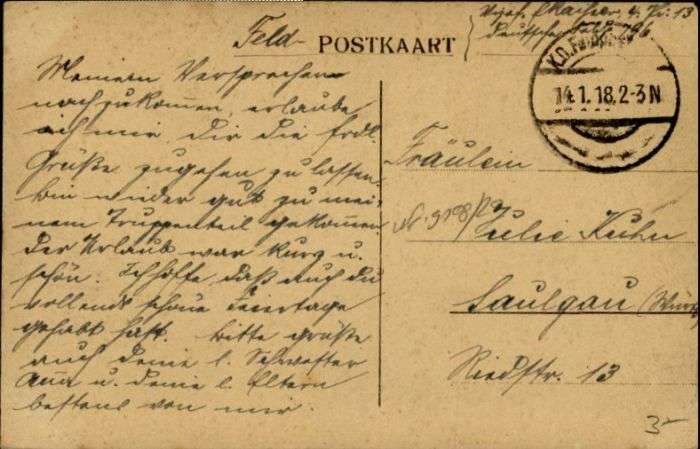 Feld-
POSTKAART
14.1.18.2-3N
Meinem Versprechen
nachzukommen, erlaube
ich mir, dir die frdl.
Grüße zugehen zu lassen.
bin wieder gut zu mei-
nem Truppenteil gekommen
der Urlaub war kurz u.
schön. Ich hoffe, daß auch du
vollends schöne Feiertage
gehabt hast. Bitte grüße
auch deine l. Schwester
Anna u. deine l. Eltern
bestens von mir.
Fräulein
Julie Kuhn
Saulgau
Riedstr. 13
3-